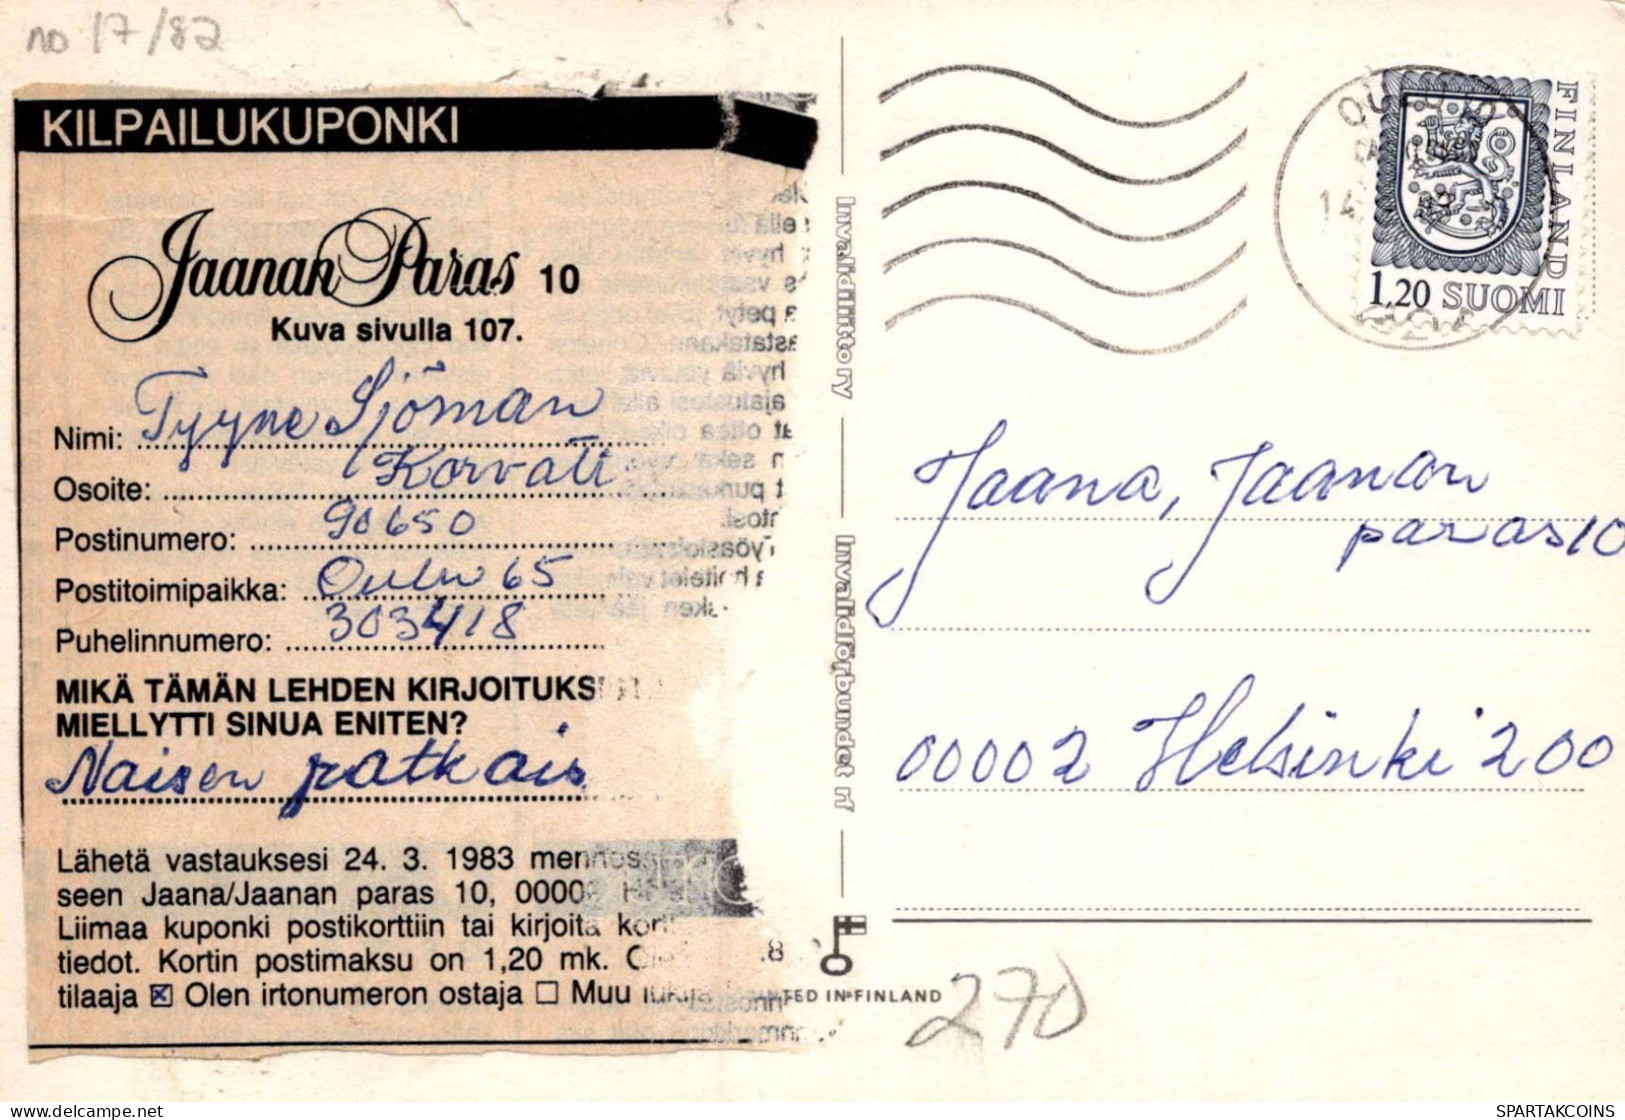 no 17/82
KILPAILUKUPONKI
Jaanan Paras 10
Kuva sivulla 107.
Nimi: Tyyne Sjöman
Osoite: Korvatie
Postinumero: 90650
Postitoimipaikka: Oulu 65
Puhelinnumero: 3034118
MIKÄ TÄMÄN LEHDEN KIRJOITUKS
MIELLYTTI SINUA ENITEN?
Naisen ratkais
Lähetä vastauksesi 24. 3. 1983 mennessä
seen Jaana/Jaanan paras 10, 00002 H
Liimaa kuponki postikorttiin tai kirjoita kort
tiedot. Kortin postimaksu on 1,20 mk. O
tilaaja ☒ Olen irtonumeron ostaja ☐ Muu lukija
Invalidiliitto ry
Invalidförbundet rf
TED IN FINLAND
OULU
14
FINLAND
1,20 SUOMI
Jaana, Jaanan
paras 10
00002 Helsinki 200
270
SPARTAKCOINS
https://www.delcampe.net